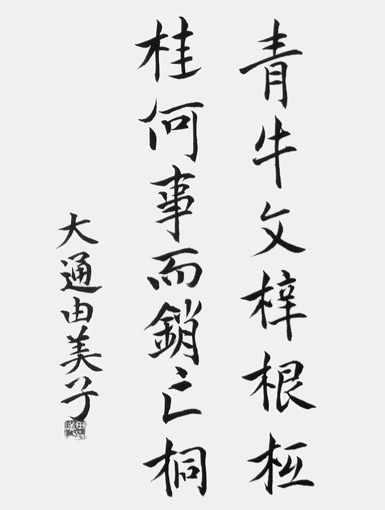 青牛文梓根柢
桂何事而銷亡桐
大通由美子